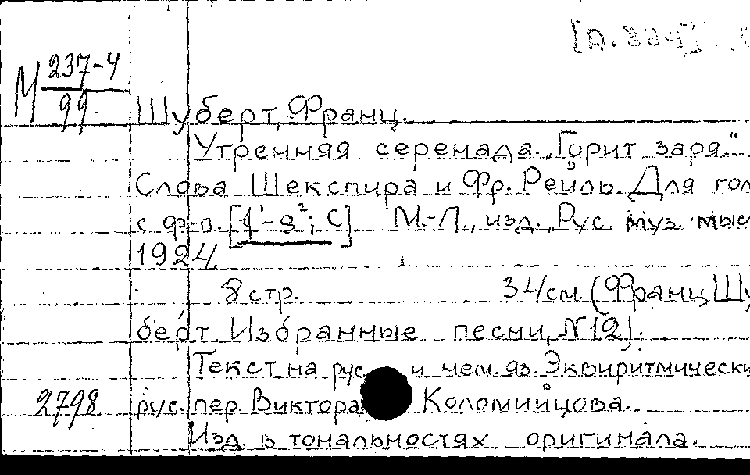 М 237-4
99
Шуберт, Франц.
Утренняя серенада. „Горит заря."
Слова Шекспира и Фр. Рейль. Для гол
с ф-п. [f¹-g²; C] М.-Л., изд. „Рус. муз. мыс
1924
8 стр. 34 см. (Франц Шу
берт. Избранные песни, N12).
Текст на рус. и нем. яз. Эквиритмически
2798 рус. пер. Виктора Коломийцова.
Изд. в тональностях оригинала.